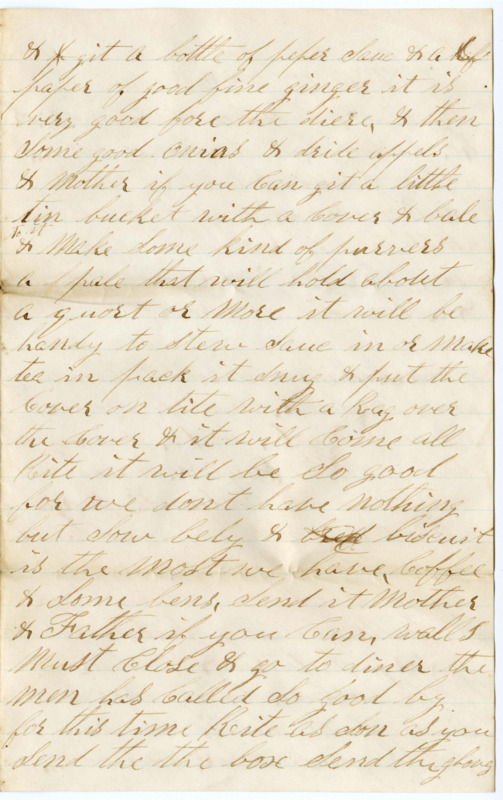 & git a bottle of peper sauc & a
paper of good fine ginger it is
very good fore the diere, & then
Some good onions & drile appels
& Mother if you Can git a little
tin bucket with a Cover & bale
to it
& Make some kind of purvers
a pale that will hold about
a quort or More it will be
handy to stew sauc in or Make
tea in pack it snug & put the
Cover on tite with a Rag over
the Cover & it will Come all
Rite it will be So good
for we dont have nothing
but Sow bely & biscuit
is the Most we have, Coffee
& Some bens, Send it Mother
& Father if you Can, wall I
Must Close & go to diner the
men has Called So good by
for this time Rite as son as you
Send the the box Send the